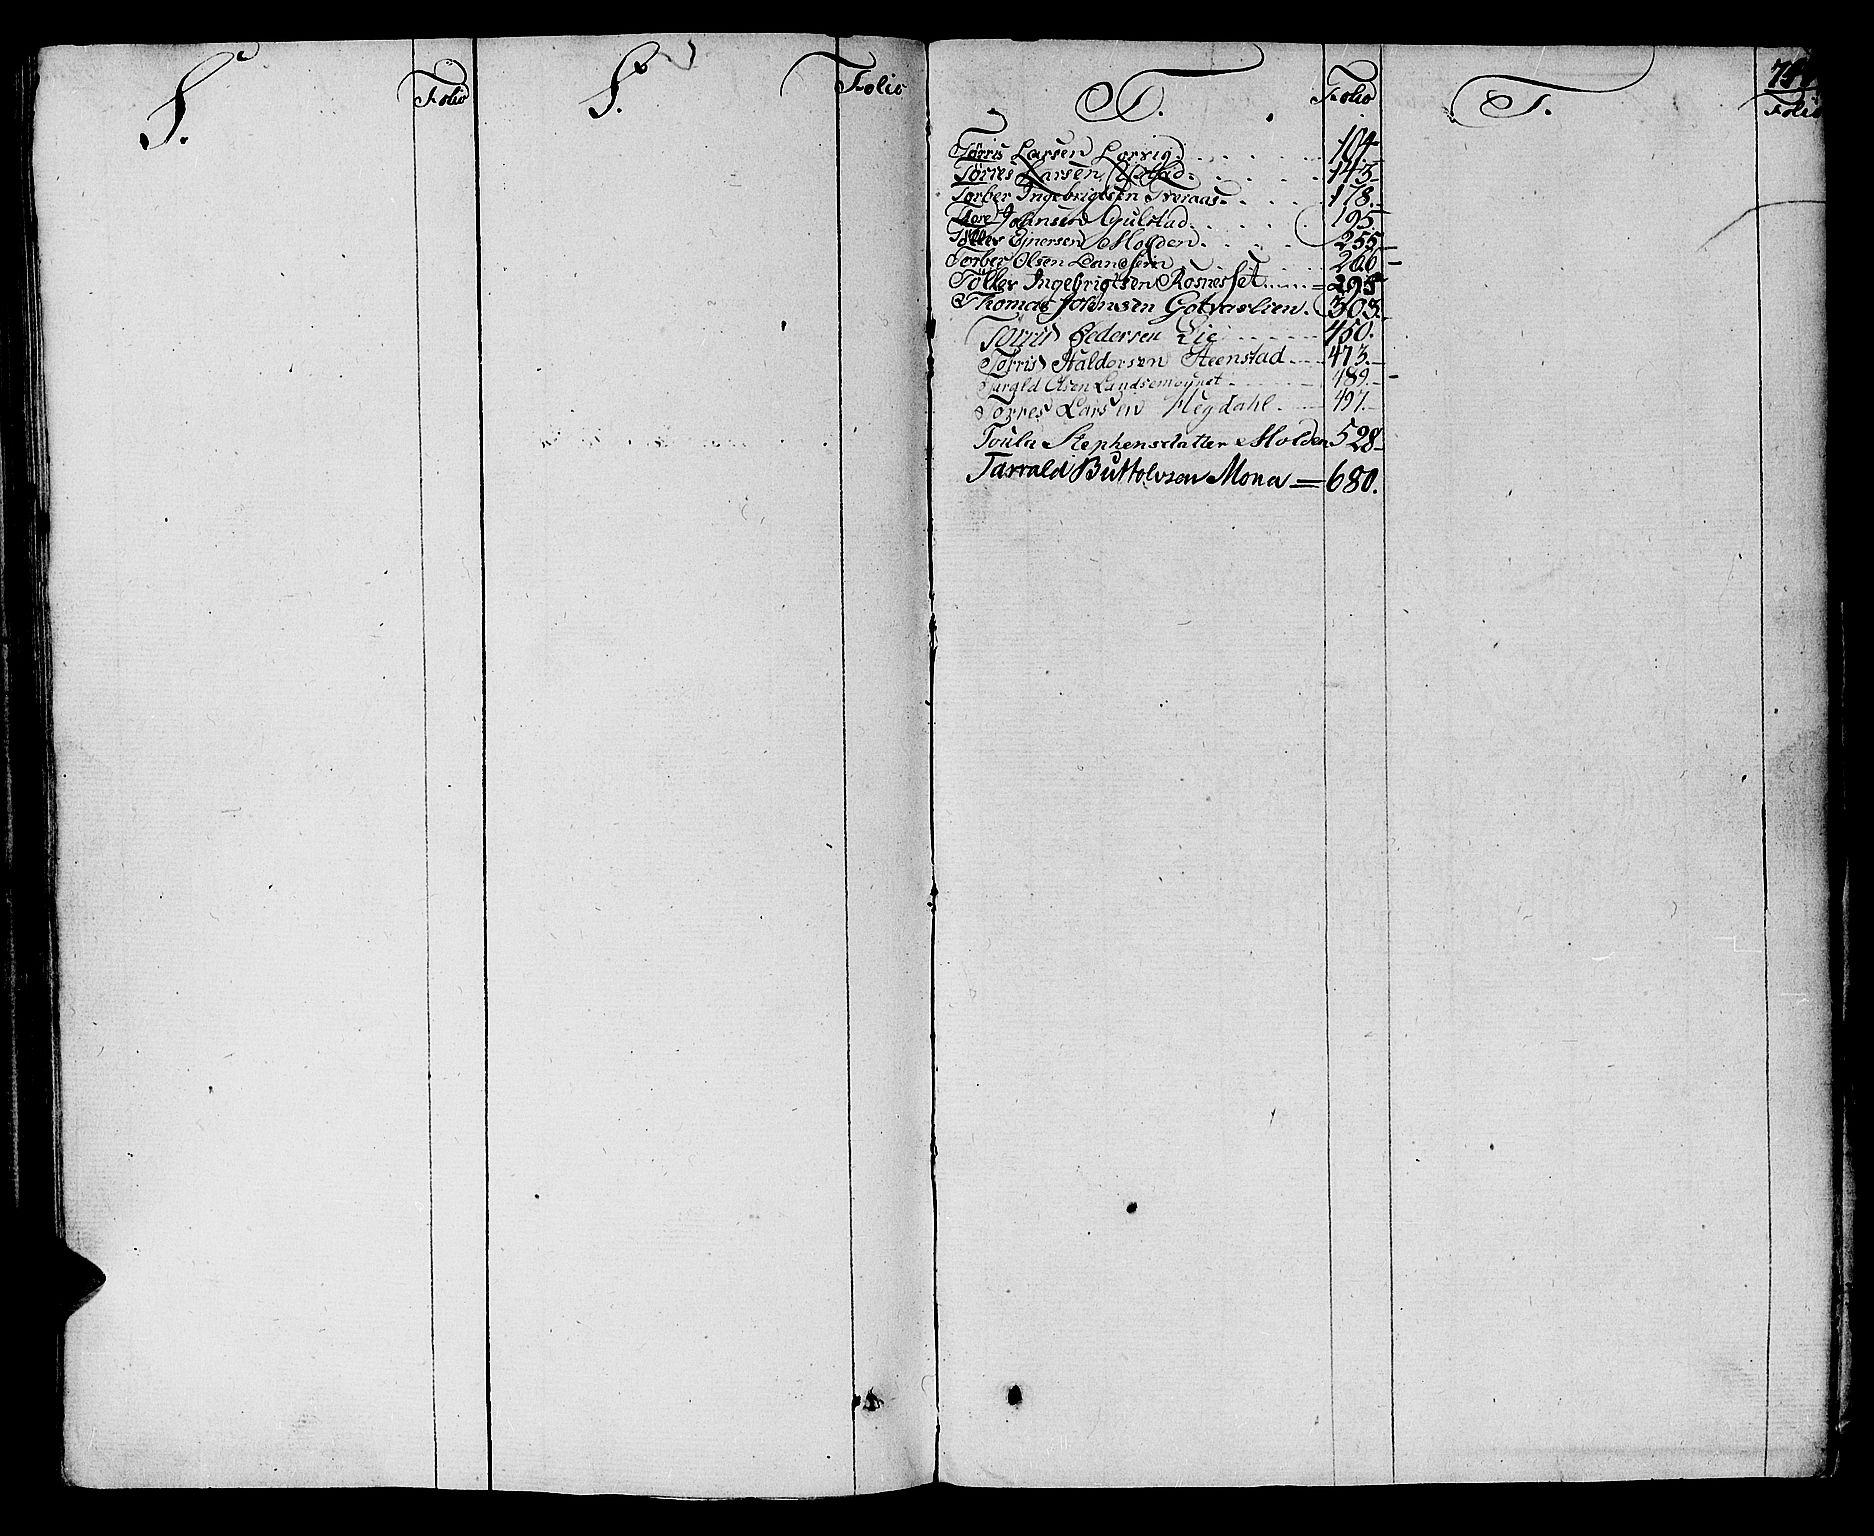 S. Folio
S. Folio
T. Folio
T. Folio
Törris Larsen Lorvig. 104
Törres Larsen Opstad. 143
Torber Ingebrigtsen Tveraas. 178.
Tore Johnsen Gulstad. 195.
Töller Ejnersen Molden. 255
Torber Olsen 266
Töller Ingebrigtsen Rosnesset 295
Thomas Johnsen Gotvaslien. 303.
Törris Pedersen Lie 450.
Torris Haldorsen Steenstad 473.
Targld Olsen Landsemoynet 489.
Torres Larsen Hegdahl. 497.
Toula Stephensdatter Molden 528
Tarrald Buttolvsen Mona = 680.